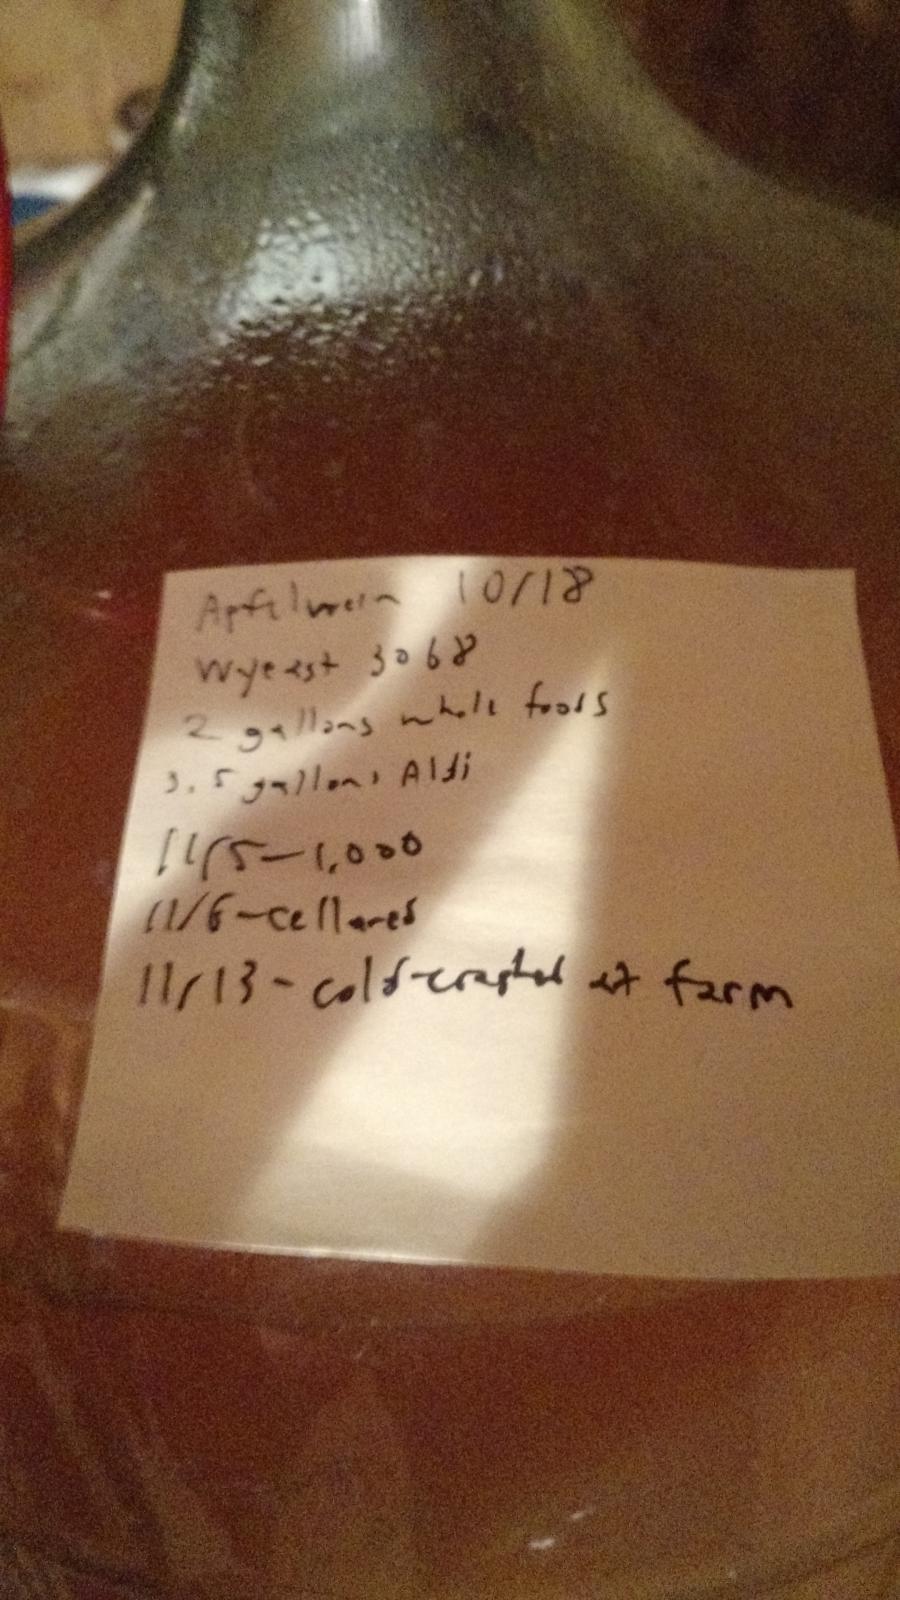 Apfelwein 10/18
Wyeast 3068
2 gallons whole foods
3.5 gallons Aldi
11/5-1.000
11/6-cellared
11/13-cold-crashed at farm